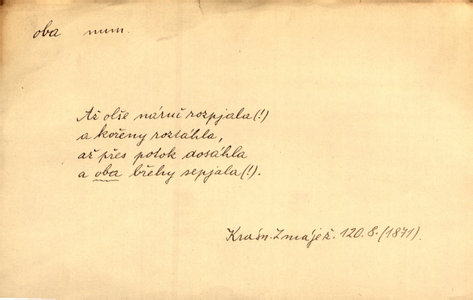 oba num.
Až olše náruč rozpjala(!)
a kořeny roztáhla,
až přes potok dosáhla
a oba břehy sepjala(!).
Krásn-Zmáješ. 120.8.(1871).